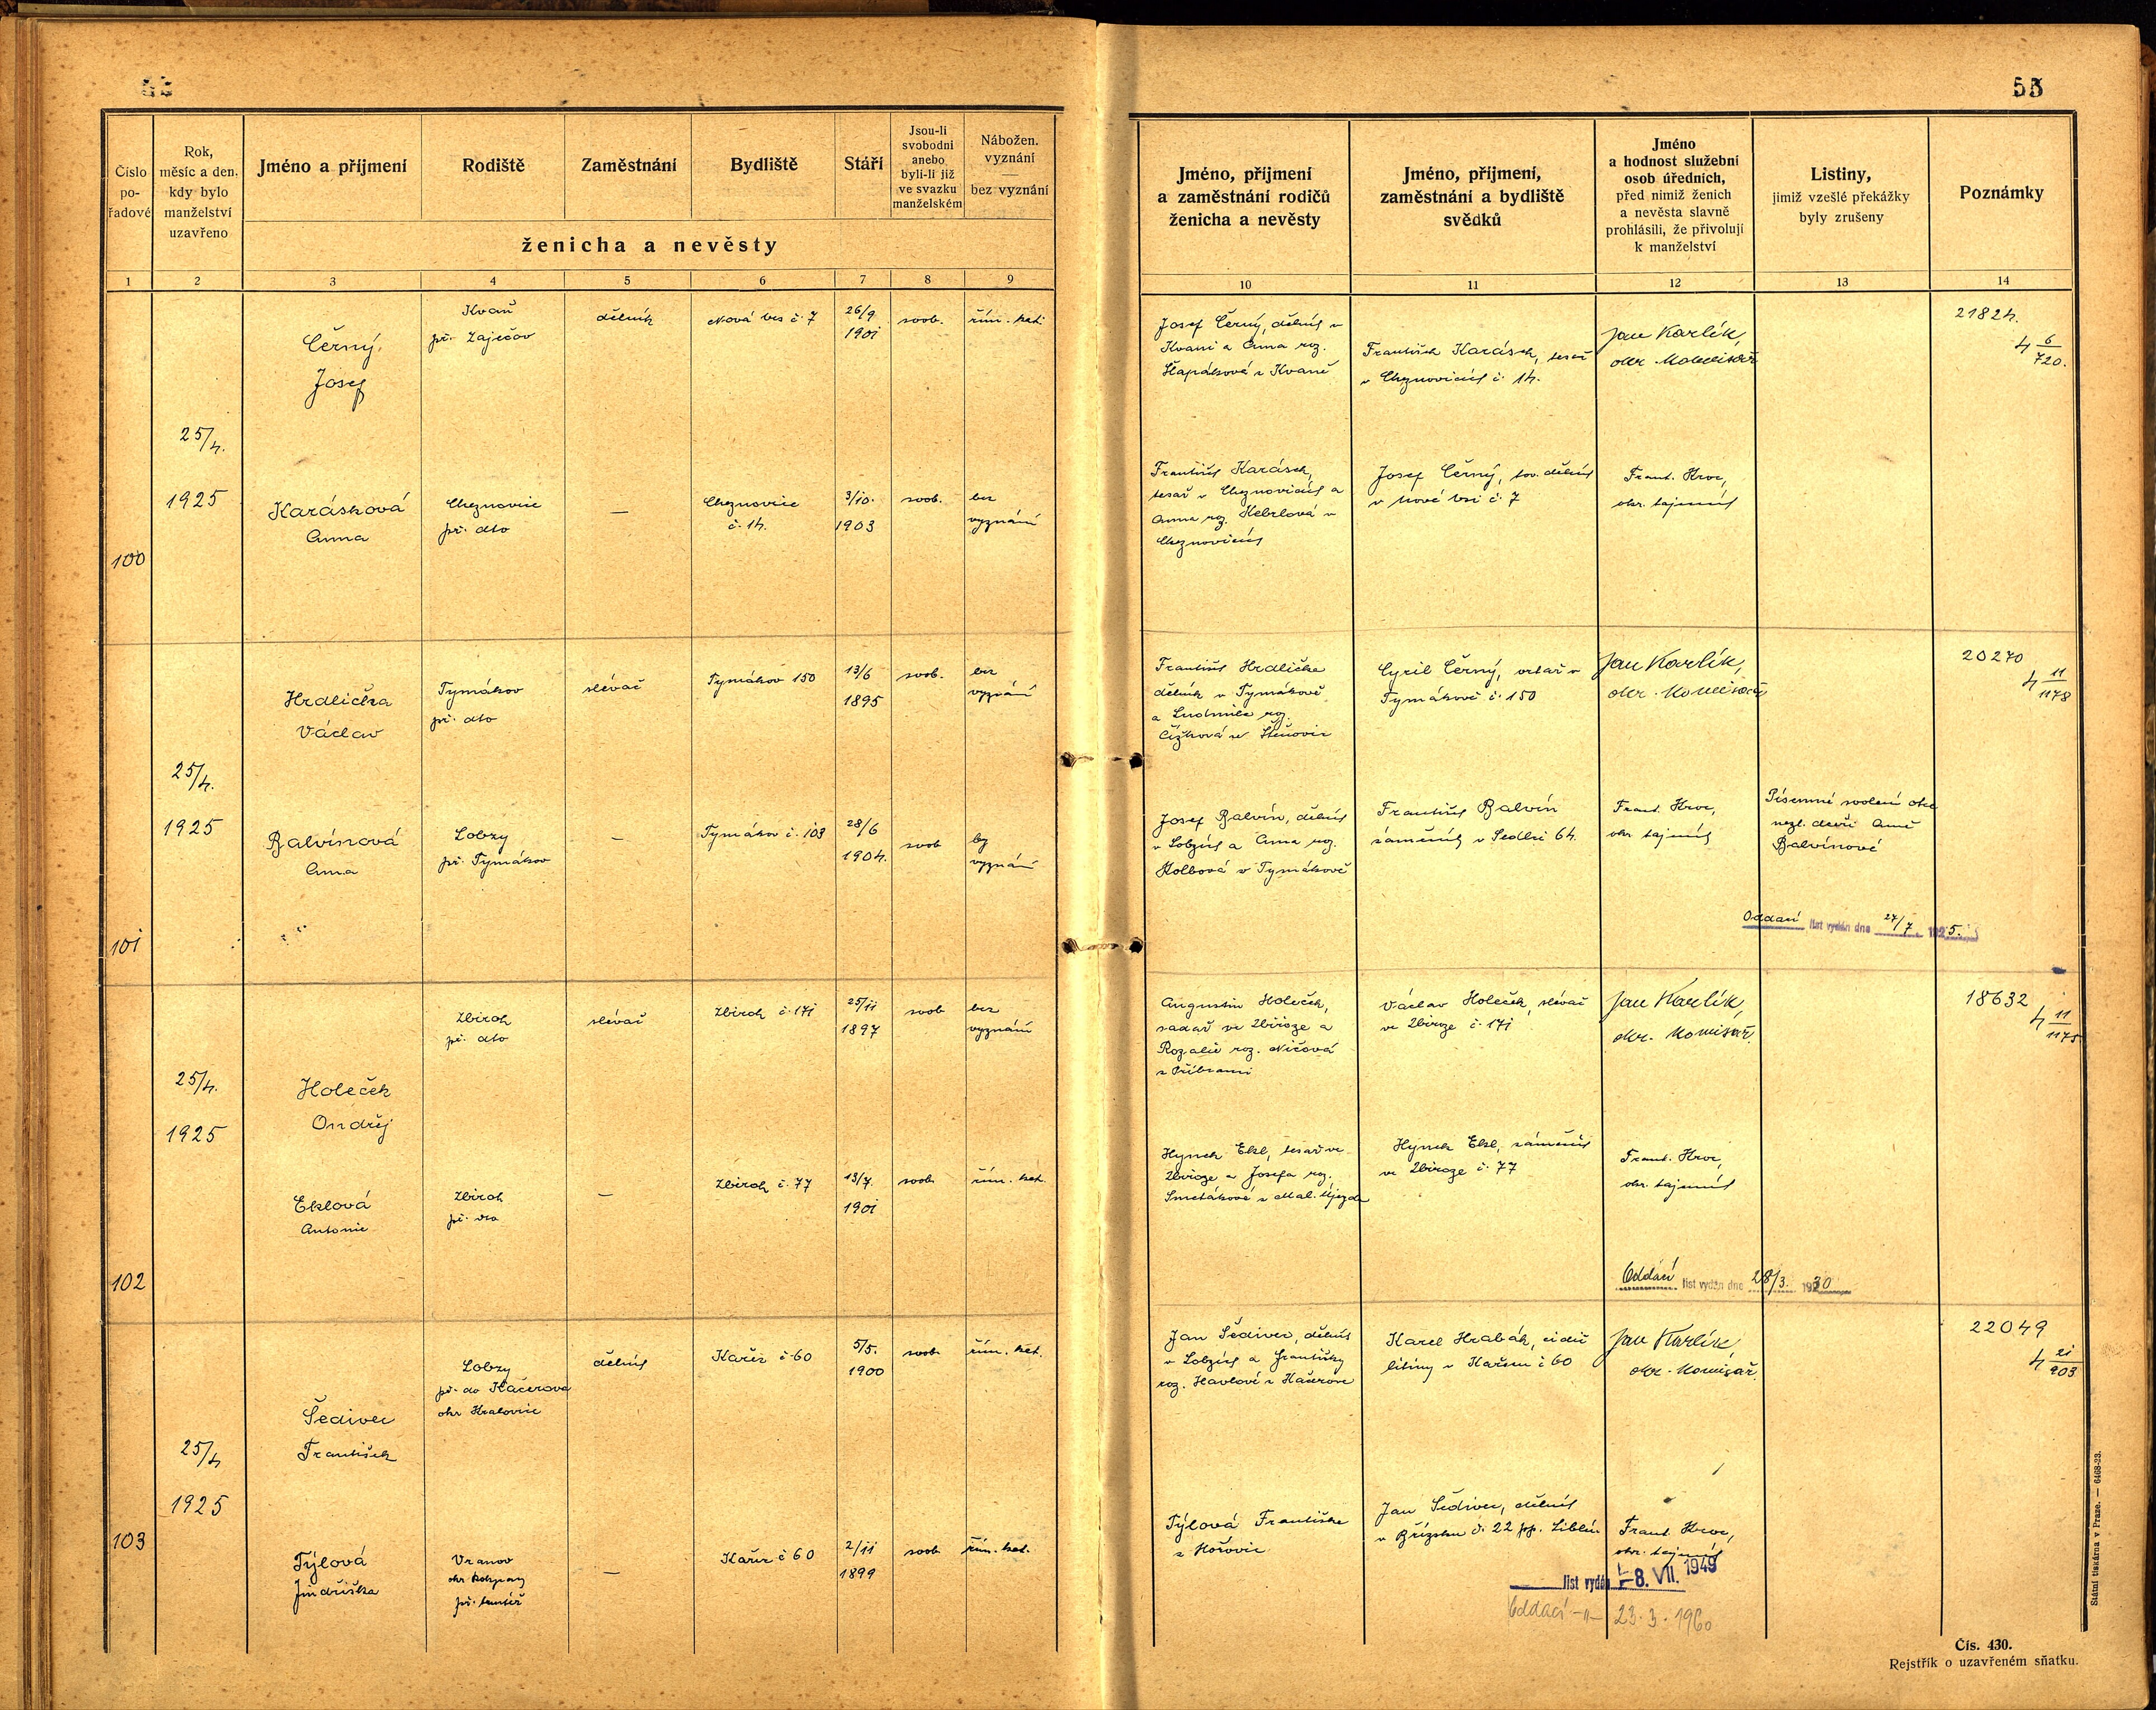 55
Číslo
po-
řadové
Rok,
měsíc a den,
kdy bylo
manželství
uzavřeno
Jméno a příjmení
Rodiště
Zaměstnání
Bydliště
Stáří
Jsou-li
svobodni
anebo
byli-li již
ve svazku
manželském
Nábožen.
vyznání
bez vyznání
ženicha a nevěsty
Jméno, příjmení
a zaměstnání rodičů
ženicha a nevěsty
Jméno, příjmení,
zaměstnání a bydliště
svědků
Jméno
a hodnost služební
osob úředních,
před nimiž ženich
a nevěsta slavně
prohlásili, že přivolují
k manželství
Listiny,
jimiž vzešlé překážky
byly zrušeny
Poznámky
1 2 3 4 5 6 7 8 9 10 11 12 13 14
100
25/4.
1925
Černý
Josef
Kvaň
př. Zaječov
dělník
Nová ves č. 7
26/9
1901
svob.
řím. kat.
Josef Černý, dělník v
Kvani a Anna roz.
z Kvaně
František Karásek, tesař
v Cheznovicích č. 14.
Jan Karlík,
okr. komisař
21824.
4 6/720.
Karásková
Anna
Cheznovice
př. dto
—
Cheznovice
č. 14.
3/10.
1903
svob.
bez
vyznání
František Karásek,
tesař v Cheznovicích a
Anna roz. v
Cheznovicích
Josef Černý, tov. dělník
v Nové vsi č. 7
Frant. Kroc,
okr. tajemník
101
25/4.
1925
Hrdlička
Václav
Tymákov
př. dto
slévač
Tymákov 150
13/6
1895
svob.
bez
vyznání
František Hrdlička
dělník v Tymákově
a Ludmila roz.
Čížková ze Štěnovic
Cyril Černý, v
Tymákově č. 150
Jan Karlík,
okr. komisař
20270
4 11/1178
Balvínová
Anna
Lobzy
př. Tymákov
—
Tymákov č. 103
28/6
1904.
svob
bez
vyznání
Josef Balvín, dělník
v Lobzích a Anna roz.
Kolbová v Tymákově
František Balvín
zámečník v Sedlci 64.
Frant. Kroc,
okr. tajemník
Písemné svolení otce
nezl. dceři Anně
Balvínové
Oddací list vydán dne 27/7 1925.
102
25/4.
1925
Holeček
Ondřej
Zbiroh
př. dto
slévač
Zbiroh č. 171
25/11
1897
svob
bez
vyznání
Augustin Holeček,
ve Zbiroze a
Rozalie roz. Ničová
z Příbrami
Václav Holeček, slévač
ve Zbiroze č. 171
Jan Karlík,
okr. komisař.
18632
4 11/1175
Eklová
Antonie
Zbiroh
př. dto
—
Zbiroh č. 77
13/7.
1901
svob
řím. kat.
Hynek Ekl, tesař ve
Zbiroze a Josefa roz.
Smetáková z Mal. Újezda
Hynek Ekl, zámečník
ve Zbiroze č. 77
Frant. Kroc,
okr. tajemník
Oddací list vydán dne 28/3. 1930
103
25/4
1925
Šedivec
František
Lobzy
př. do Kačerova
okr Kralovice
dělník
Kařez č. 60
5/5.
1900
svob
řím. kat.
Jan Šedivec, dělník
v Lobzích a Františky
roz. Havlové z Kačerova
Karel Hrabák, cidič
litiny v Kařezu č 60
Jan Karlík,
okr. komisař.
22049
4 21/903
Týlová
Jindřiška
Vranov
okr
př.
—
Kařez č 60
2/11
1899
svob
řím. kat.
Týlová Františka
z Hořovic
Jan Šedivec, dělník
v Břízsku č. 22 pp. Liblín
Frant. Kroc,
okr. tajemník
list vydán -8. VII. 1949
Oddací -„- 23. 3. 1960
Čís. 430.
Rejstřík o uzavřeném sňatku.
Státní tiskárna v Praze. — 6468-23.